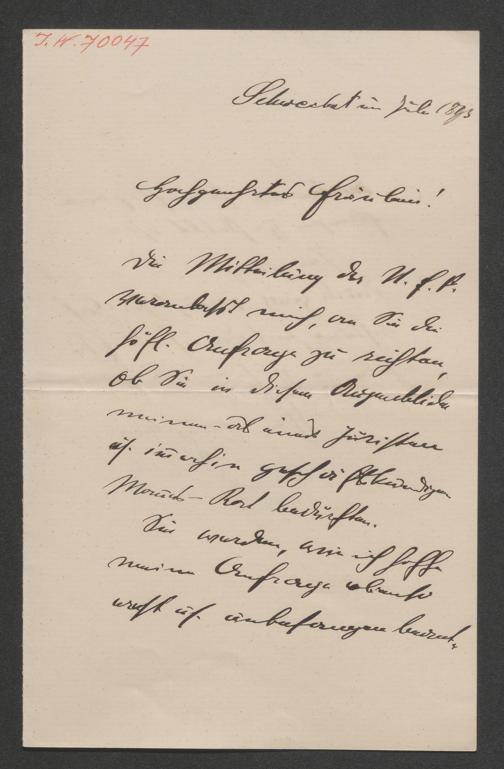 I. N. 70047
Schwechat im Juli 1893
Hochgeehrtes Fräulein!
Die Mittheilung der N. f. P.
veranlaßt mich, an Sie die
höfl. Anfrage zu richten,
ob Sie in diesem Augenblicke
meinen - als eines Juristen
u. imerhin geschäftskundigen
Mannes - Rat bedürften.
Sie werden, wie ich hoffe
meine Anfrage ebenso
recht u. unbefangen beant-